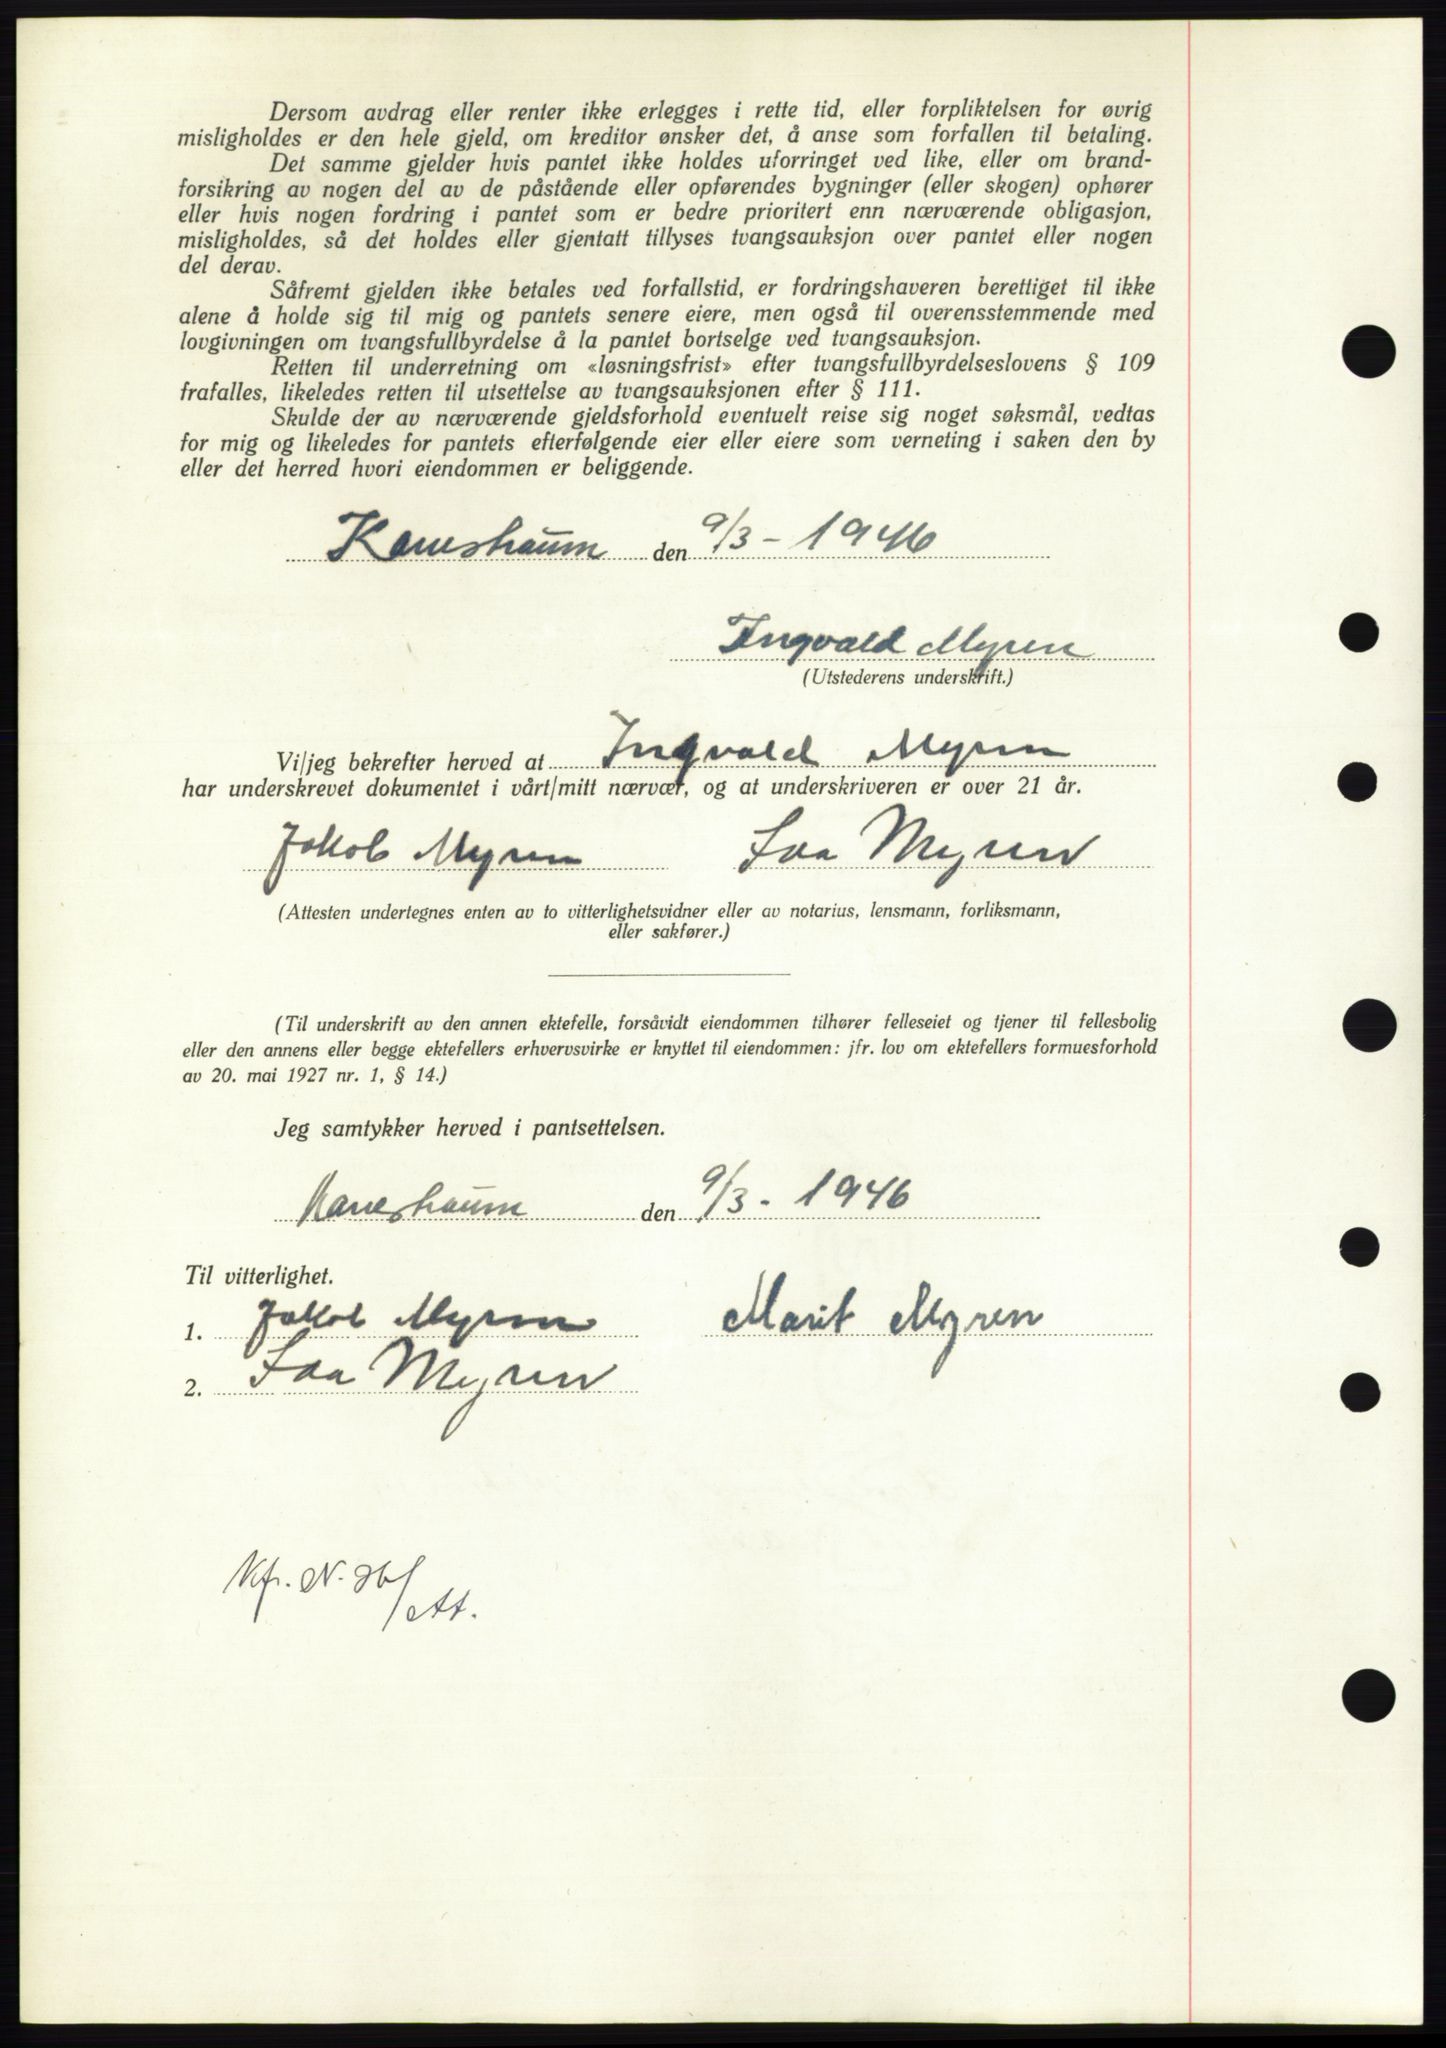 Dersom avdrag eller renter ikke erlegges i rette tid, eller forpliktelsen for øvrig
misligholdes er den hele gjeld, om kreditor ønsker det, å anse som forfallen til betaling.
Det samme gjelder hvis pantet ikke holdes uforringet ved like, eller om brand-
forsikring av nogen del av de påstående eller opførendes bygninger (eller skogen) ophører
eller hvis nogen fordring i pantet som er bedre prioritert enn nærværende obligasjon,
misligholdes, så det holdes eller gjentatt tillyses tvangsauksjon over pantet eller nogen
del derav.
Såfremt gjelden ikke betales ved forfallstid, er fordringshaveren berettiget til ikke
alene å holde sig til mig og pantets senere eiere, men også til overensstemmende med
lovgivningen om tvangsfullbyrdelse å la pantet bortselge ved tvangsauksjon.
Retten til underretning om «løsningsfrist» efter tvangsfullbyrdelseslovens § 109
frafalles, likeledes retten til utsettelse av tvangsauksjonen efter § 111.
Skulde der av nærværende gjeldsforhold eventuelt reise sig noget søksmål, vedtas
for mig og likeledes for pantets efterfølgende eier eller eiere som verneting i saken den by
eller det herred hvori eiendommen er beliggende.
den 9/3 - 1946
Ingvald Myren
(Utstederens underskrift.)
Vi/jeg bekrefter herved at Ingvald Myren
har underskrevet dokumentet i vårt/mitt nærvær, og at underskriveren er over 21 år.
Jakob Myren Myren
(Attesten undertegnes enten av to vitterlighetsvidner eller av notarius, lensmann, forliksmann,
eller sakfører.)
(Til underskrift av den annen ektefelle, forsåvidt eiendommen tilhører felleseiet og tjener til fellesbolig
eller den annens eller begge ektefellers erhvervsvirke er knyttet til eiendommen: jfr. lov om ektefellers formuesforhold
av 20. mai 1927 nr. 1, § 14.)
Jeg samtykker herved i pantsettelsen.
den 9/3 - 1946
Til vitterlighet.
1. Jakob Myren Marit Myren
2. Myren